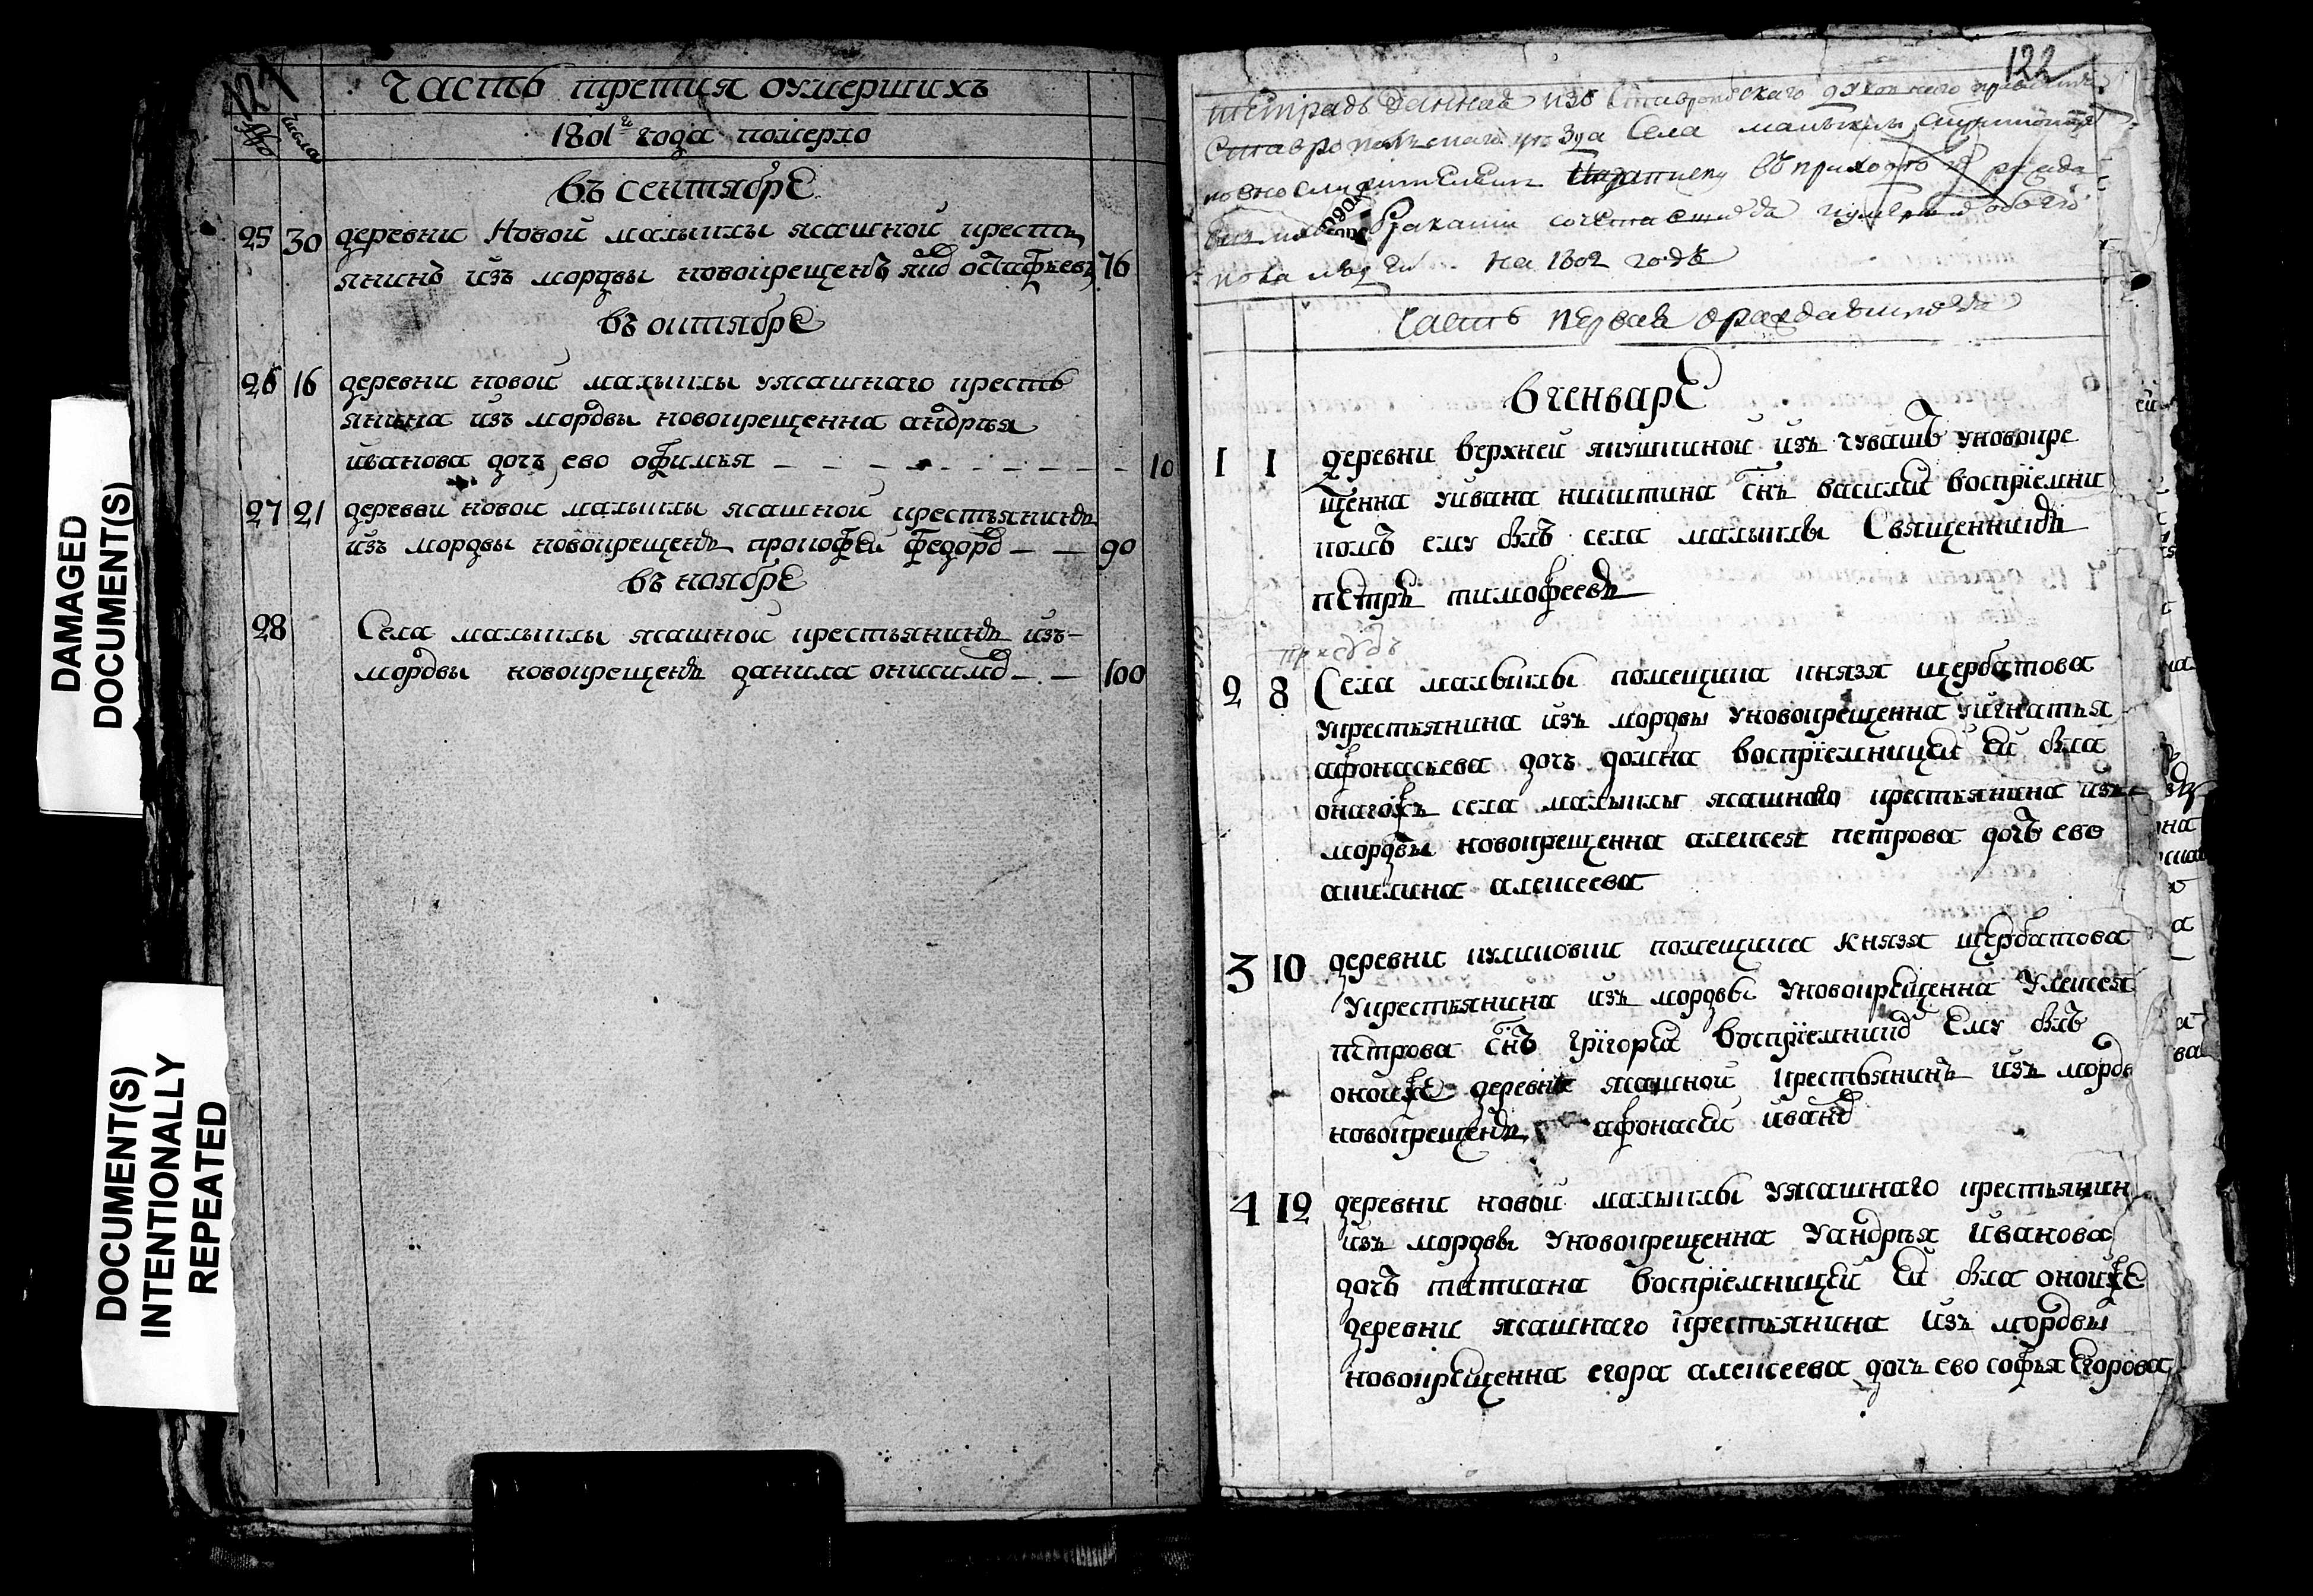 121
Часть третия оумершихъ
№
числа
1801г года померло
въ сентябрЕ
25 30 деревни Новой малыклы ясашной кресть
янинъ изъ мордвы новокрещенъ якѡв остафьевъ 76
въ октябрЕ
26 16 деревни новой малыклы уясашнаго кресть
янина изъ мордвы новокрещенна андрѣя
иванова дочь ево офимья 10
27 21 деревни новой малыклы ясашной крестьянинъ
изъ мордвы новокрещенъ прокофей федоров 90
въ ноябрЕ
28 Села малыклы ясашной крестьянинъ изъ
мордвы новокрещенъ данила онисимов 100
122
тетрадь данная изъ Ставропольскаго духовнаго правления
Ставропольскаго уѣзда Села малыклы
въ приходѣ
сочетавшихся
на 1802 годъ
Часть первая ораждающихся
в генварЕ
1 1 деревни верхней якушкиной изъ чувашъ уновокре
щенна уивана никитина снъ василей воспріемни
комъ ему былъ села малыклы Священникъ
петръ тимофеевъ
2 8 Села малыклы помещика князя щербатова
укрестьянина изъ мордвы уновокрещенна уигнатья
афонасьева дочь домна воспріемницей ей была
онагожъ села малыклы ясашнаго крестьянина изъ
мордвы новокрещенна алексея петрова дочь ево
акилина алексеева
3 10 деревни куликовки помещика князя щербатова
укрестьянина изъ мордвы уновокрещенна улексея
петрова снъ григорей воспріемником ему былъ
оной жЕ деревни ясашной крестьянинъ изъ мордв
новокрещенъ афонасей иванов
4 12 деревни новой малыклы уясашнаго крестьянин
изъ мордвы уновокрещенна уандрѣя иванова
дочь татиана воспріемницей ей была оной жЕ
деревни ясашнаго крестьянина изъ мордвы
новокрещенна егора алексеева дочь ево софья Егорова
DAMAGED
DOCUMENT(S)
DOCUMENT(S)
INTENTIONALLY
REPEATED